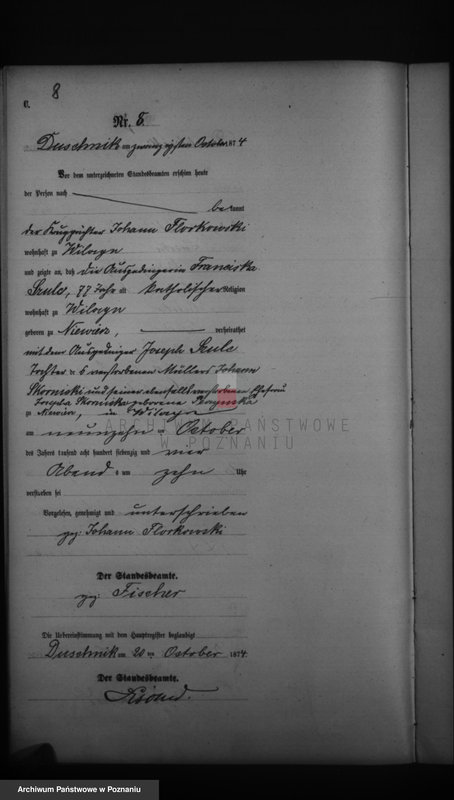 8
C.
Nr. 8
Duschnik am zwanzigsten October 1874
Vor dem unterzeichneten Standesbeamten erschien heute
der Person nach
bekannt
der Johann Florkowski
wohnhaft zu Wilczyn
und zeigte an, daß die Ausgedingerin Franciska
Szulc, 77 Jahr alt katholischer Religion
wohnhaft zu Wilczyn
geboren zu Niewierz, verheirathet
mit dem Ausgedinger Joseph Szulc
Tochter des verstorbenen Müllers Johann
Skornicki und seiner ebenfalls verstorbenen Ehefrau
Skornicka geborene
zu Niewierz, in Wilczyn
am neunzehn ten October
des Jahres tausend acht hundert siebenzig und vier
Abend s um zehn Uhr
verstorben sei
Vorgelesen, genehmigt und unterschrieben
gez: Johann Florkowski
Der Standesbeamte.
gez: Fischer
Die Uebereinstimmung mit dem Hauptregister beglaubigt
Duschnik am 20 ten October 1874
Der Standesbeamte.
ARCHIWUM PAŃSTWOWE
W POZNANIU
Archiwum Państwowe w Poznaniu